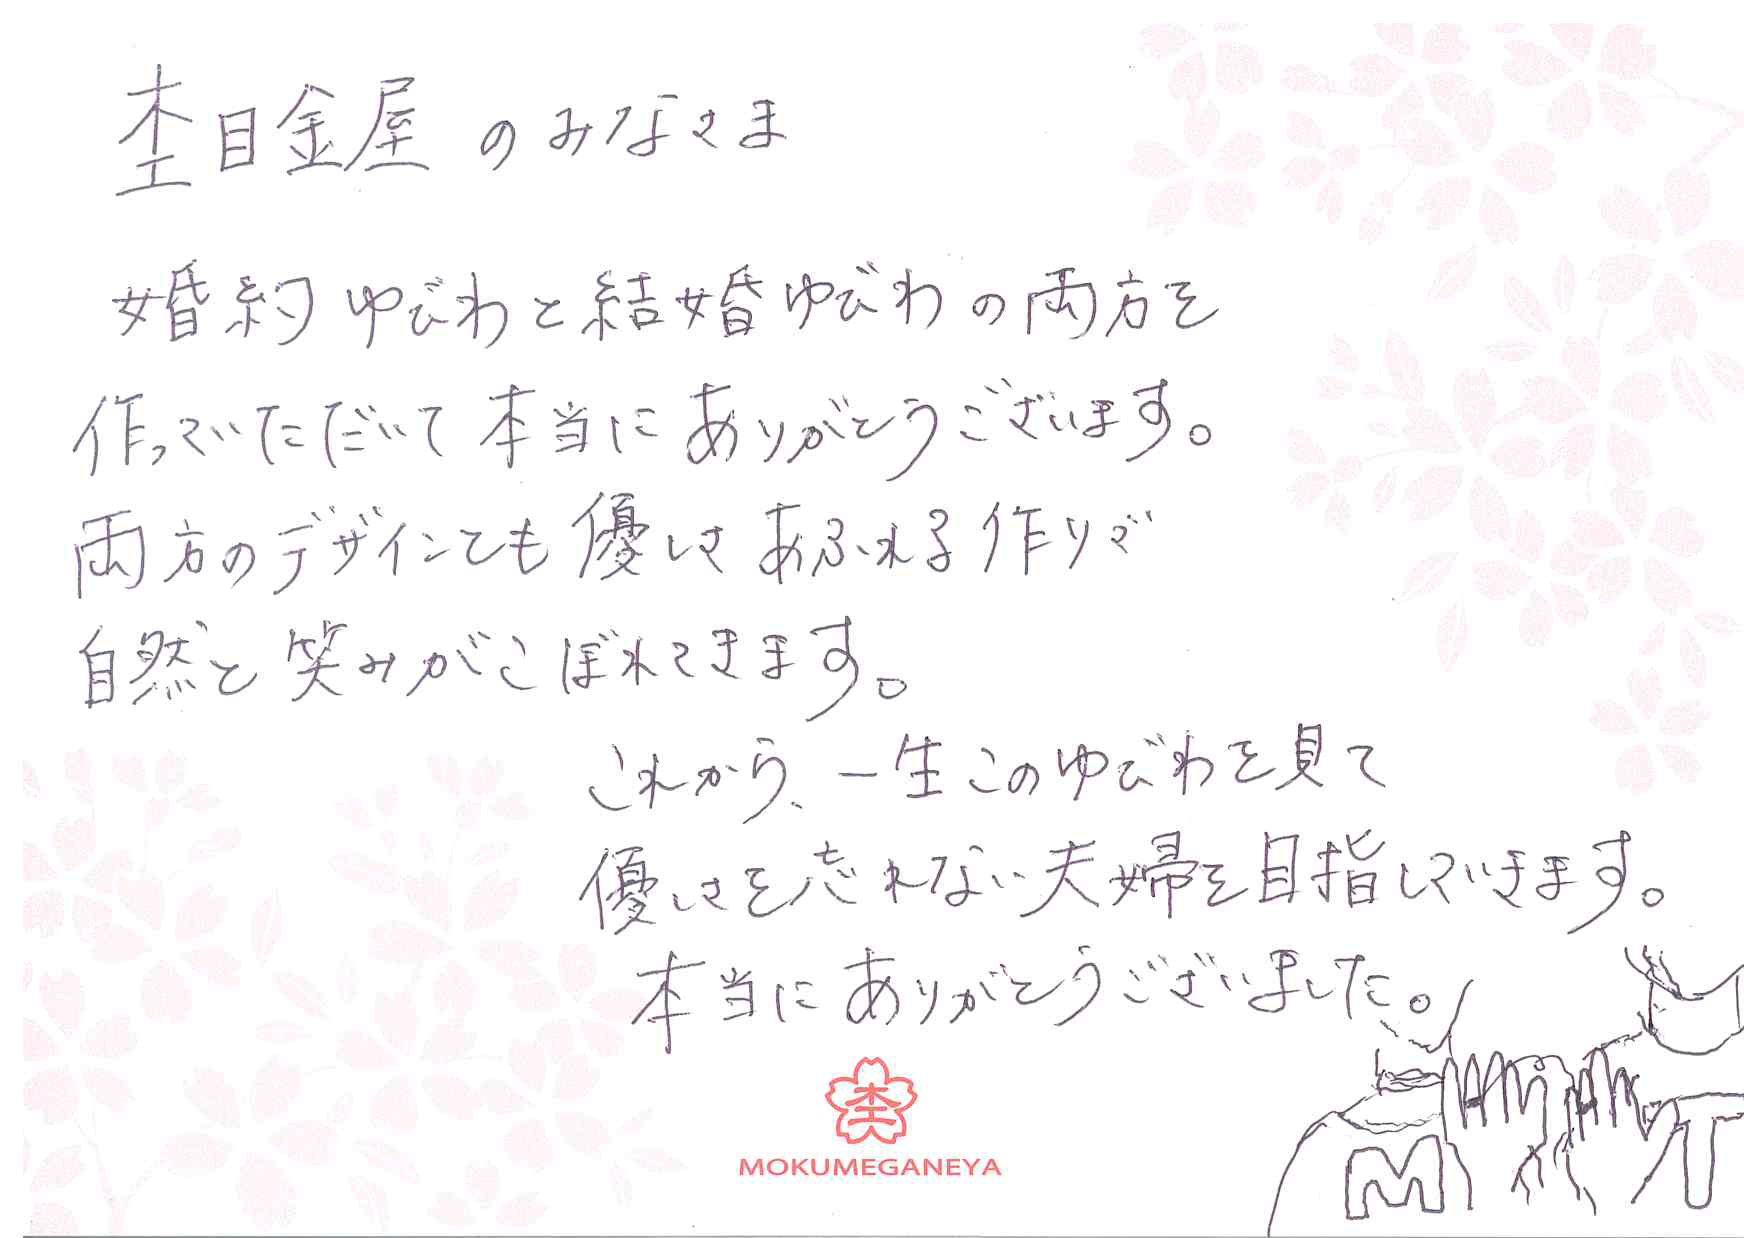 杢目金屋のみなさま
婚約ゆびわと結婚ゆびわの両方を
作っていただいて本当にありがとうございます。
両方のデザインとも優しさあふれる作りで
自然と笑みがこぼれてきます。
これから、一生このゆびわを見て
優しさを忘れない夫婦を目指していきます。
本当にありがとうございました。
杢
MOKUMEGANEYA
M T